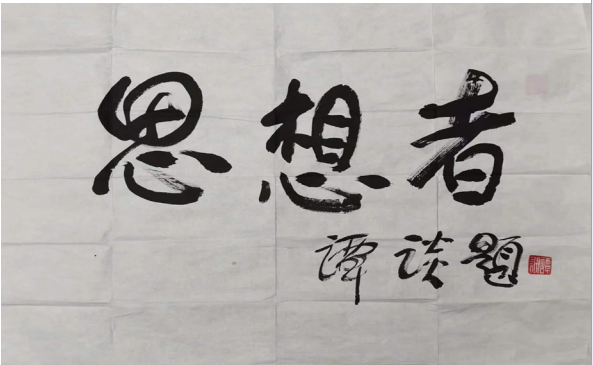 思想者
谭谈题